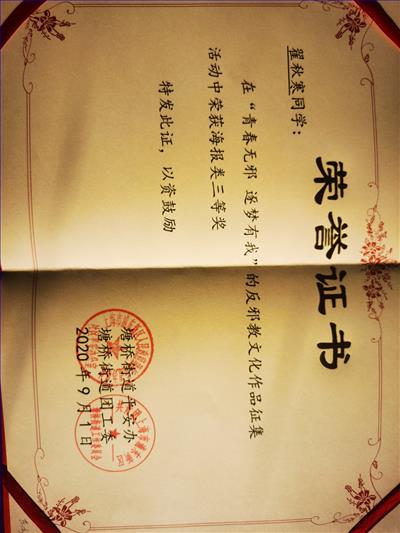 荣誉证书
翟秋寒同学：
在“青春无邪 逐梦有我”的反邪教文化作品征集
活动中荣获海报类三等奖
特发此证，以资鼓励
塘桥街道平安办
塘桥街道团工委
2020年9月1日